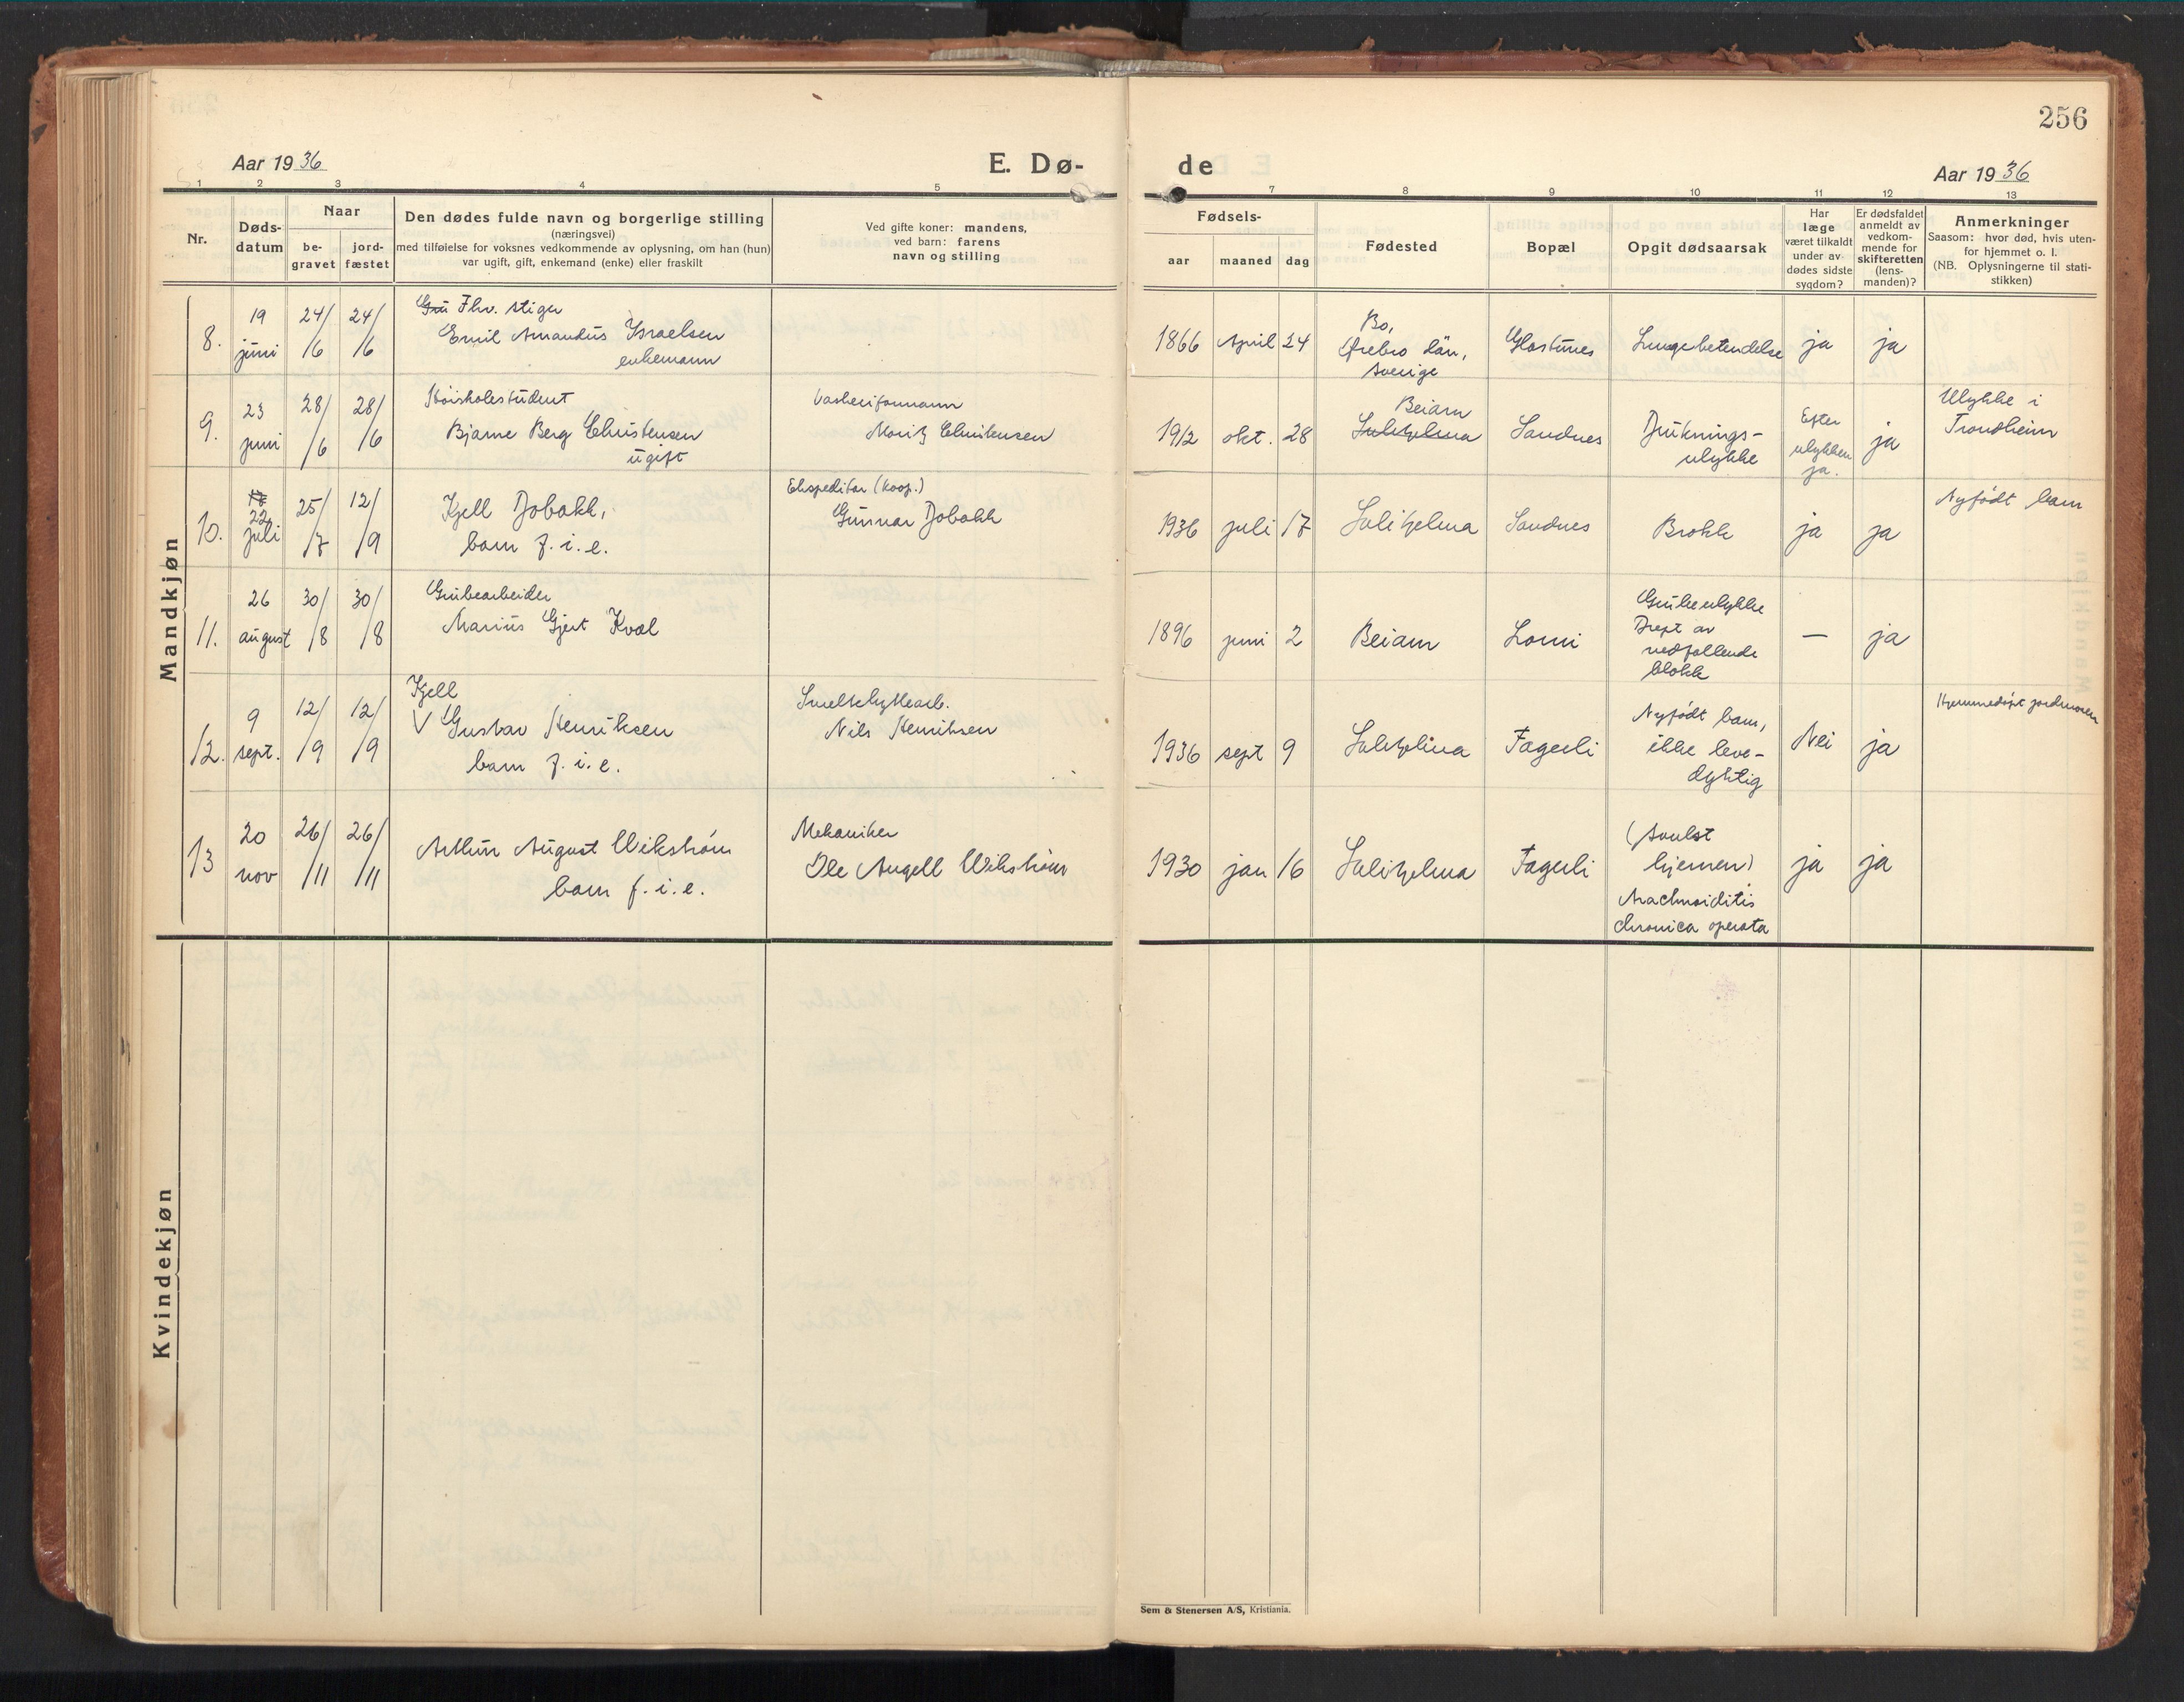 256
Aar 1936
E. Dø-
de
Aar 1936
1 2 3 4 5 7 8 9 10 11 12 13
Nr.
Døds-
datum
Naar
be-
gravet
jord-
fæstet
Den dødes fulde navn og borgerlige stilling
(næringsvei)
med tilføielse for voksnes vedkommende av oplysning, om han (hun)
var ugift, gift, enkemand (enke) eller fraskilt
Ved gifte koner: mandens,
ved barn: farens
navn og stilling
Fødsels-
aar
maaned
dag
Fødested
Bopæl
Opgit dødsaarsak
Har
læge
været tilkaldt
under av
dødes sidste
sygdom?
Er dødsfaldet
anmeldt av
vedkom-
mende for
skifteretten
(lens-
manden)?
Anmerkninger
Saasom: hvor død, hvis uten-
for hjemmet o. l.
(NB. Oplysningerne til stati-
stikken)
Mandkjøn
8.
19
juni
24/6
24/6
Fhv. stiger
Emil Amandus Israelsen
enkemann
1866 April 24
Bo,
Ørebro län,
Sverige
Glastunes
Lungebetendelse
ja
ja
9.
23
juni
28/6
28/6
Høiskolestudent
Bjarne Berg Christensen
ugift
Vaskeriformann
Moritz Christensen
1912 okt. 28
Beiarn
Sulitjelma
Sandnes
Druknings-
ulykke
Efter
ulykken
ja.
ja
Ulykke i
Trondheim
10.
22
juli
25/7
12/9
Kjell Dobakk,
barn f. i. e.
Ekspeditør (koop.)
Gunnar Dobakk
1936 juli 17
Sulitjelma
Sandnes
Brokk
ja
ja
Nyfödt barn
11.
26
august
30/8
30/8
Grubearbeider
Marius Gjert Kvæl
1896 juni 2
Beiarn
Lomi
Grubeulykke
Drept av
nedfallende
blokk
—
ja
12.
9
sept.
12/9
12/9
Kjell
V Gustav Henriksen
barn f. i. e.
Smeltehyttearb.
Nils Henriksen
1936 sept 9
Sulitjelma
Fagerli
Nyfödt barn,
ikke leve-
dyktig
Nei
ja
Hjemmedöpt jordmoren
13
20
nov
26/11
26/11
Arthur August Wikström
barn f. i. e.
Mekaniker
Ole Angell Wikström
1930 jan 16
Sulitjelma
Fagerli
(Svulst
hjernen)
Arachnoiditis
chronica operata
ja
ja
Kvindekjøn
Sem & Stenersen A/S, Kristiania.